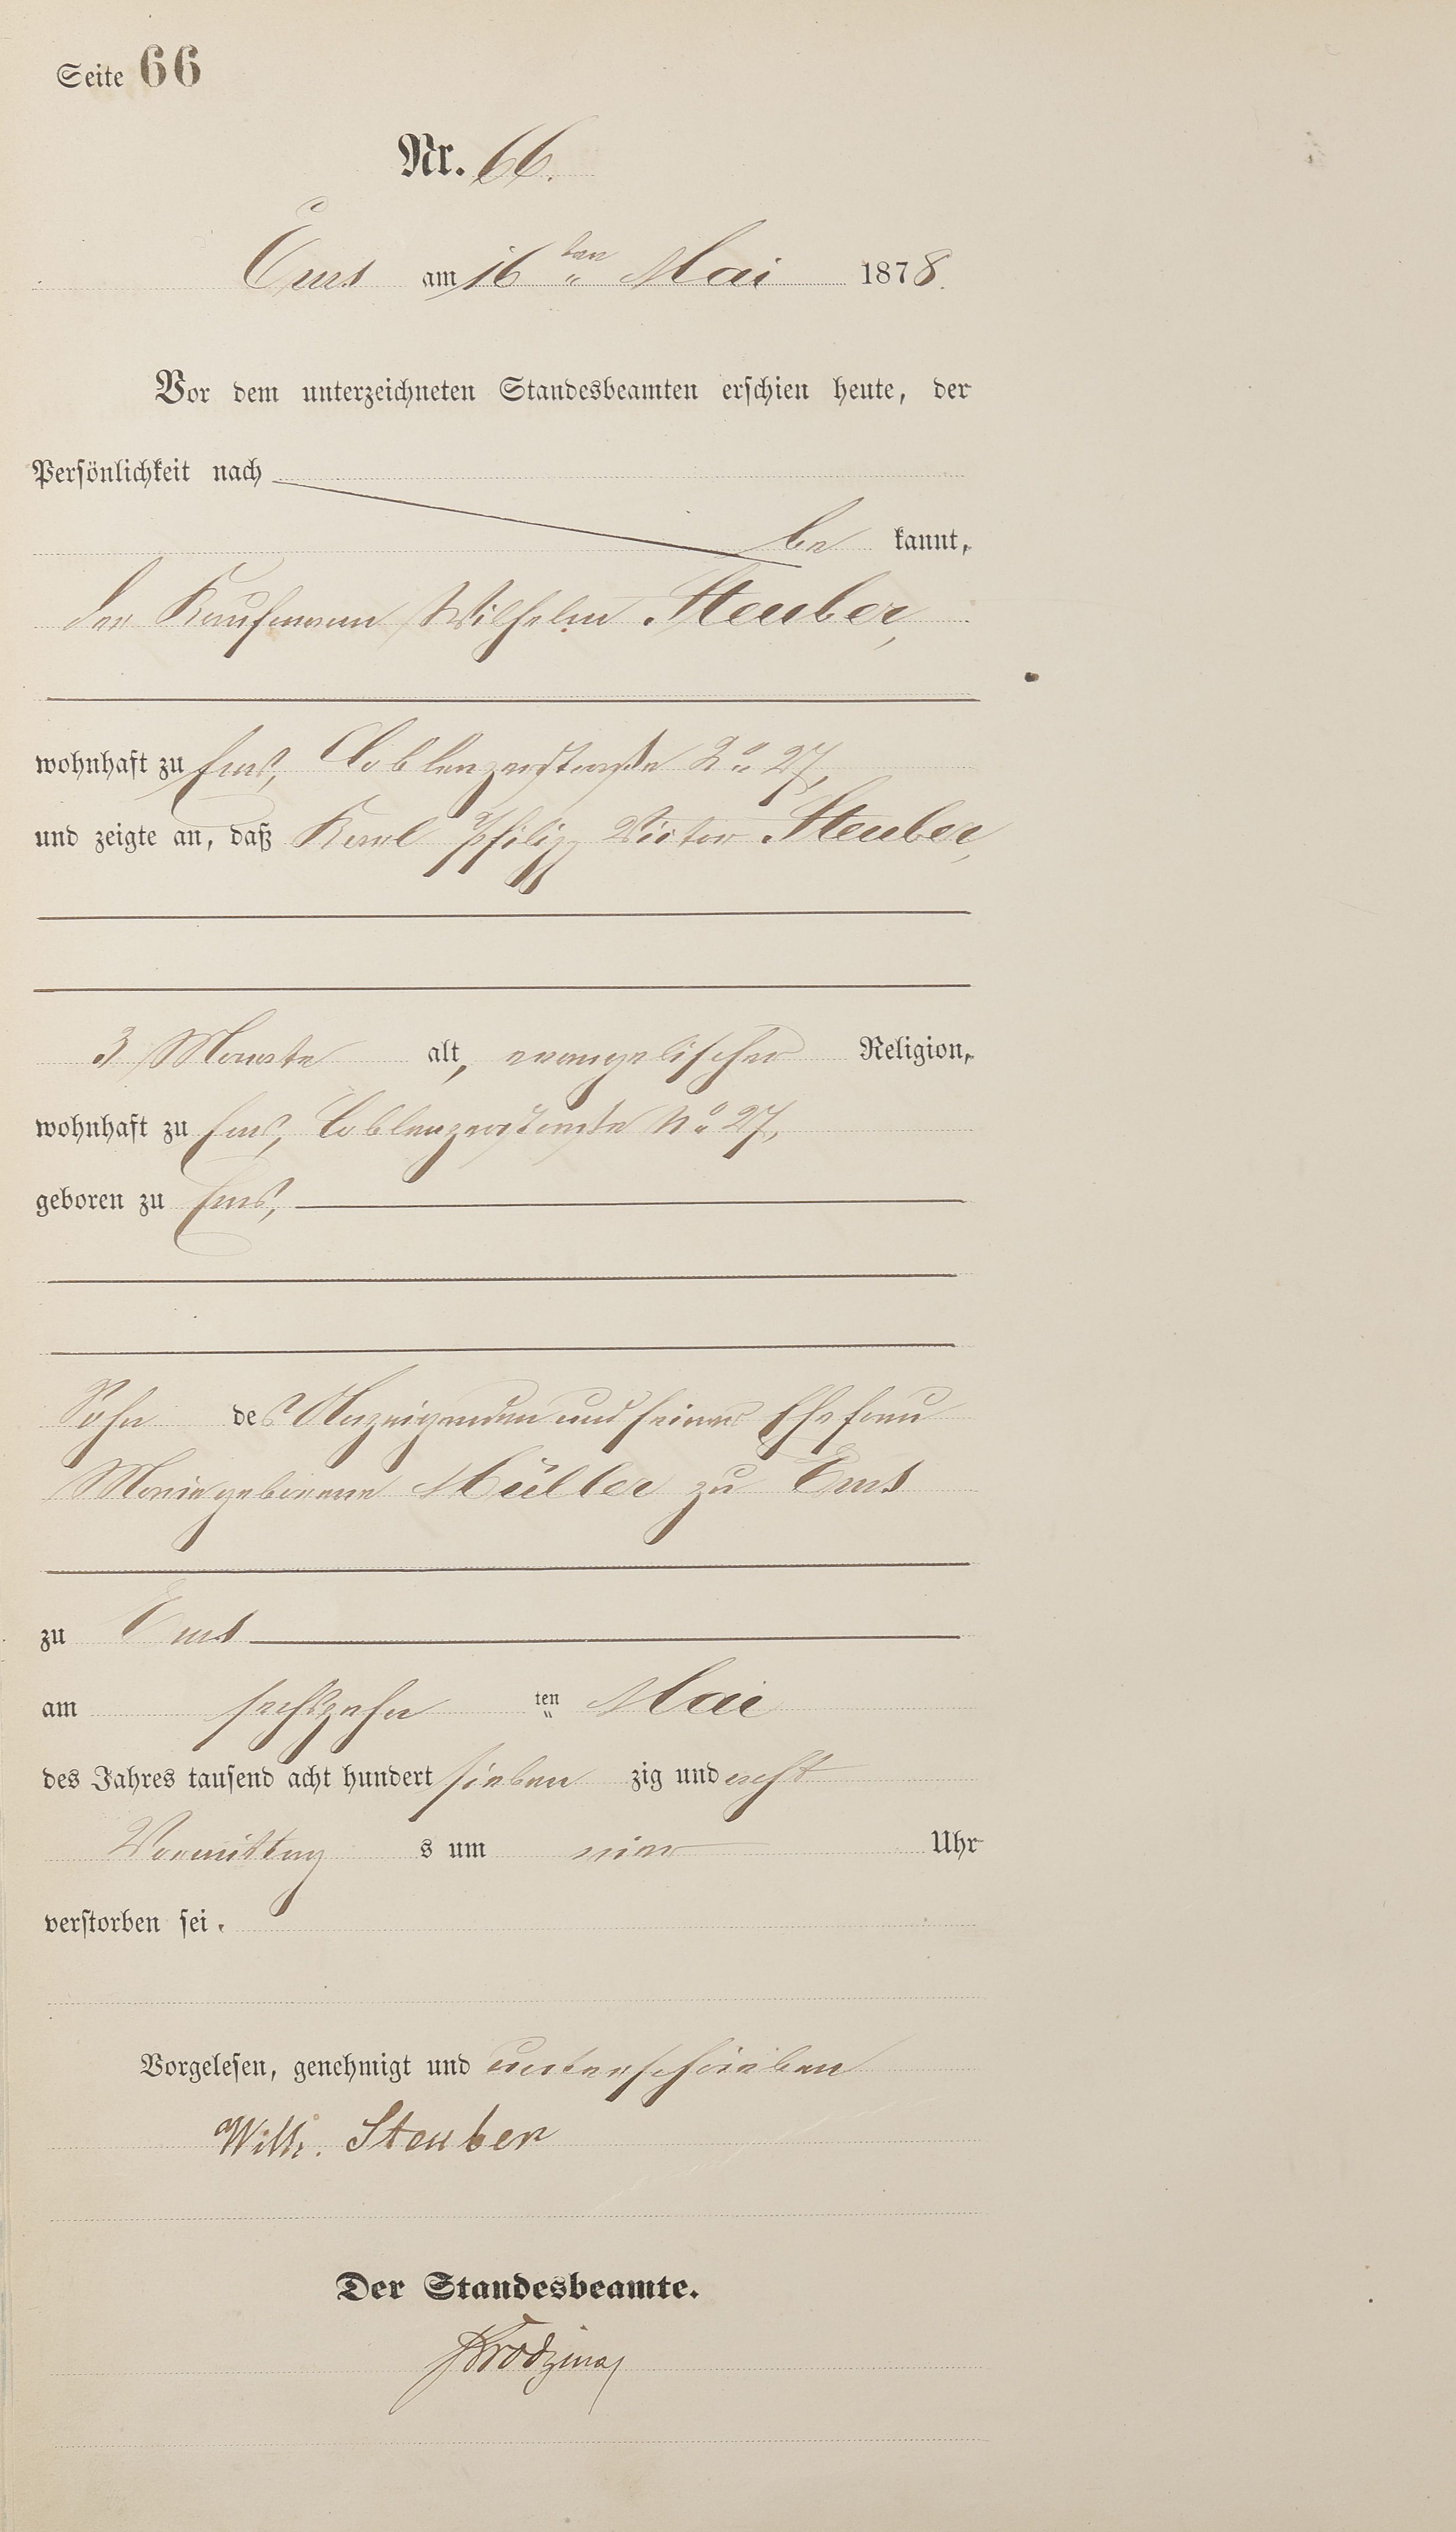 Seite 66
Nr. 66.
Ems am 16ten Mai 1878.
Vor dem unterzeichneten Standesbeamten erschien heute, der
Persönlichkeit nach
be kannt,
der Kaufmann Wilhelm Steuber,
wohnhaft zu Ems, Coblenzerstraße No 27,
und zeigte an, daß Karl Philipp Victor Steuber,
3 Monate alt, evangelischer Religion,
wohnhaft zu Ems, Coblenzerstraße No 27,
geboren zu Ems,
Sohn des Anzeigenden und seiner Ehefrau
Marie geborene Müller zu Ems
zu Ems
am sechszehn ten Mai
des Jahres tausend acht hundert sieben zig und acht
Vormittag s um vier Uhr
verstorben sei.
Vorgelesen, genehmigt und unterschrieben
Wilh. Steuber
Der Standesbeamte.